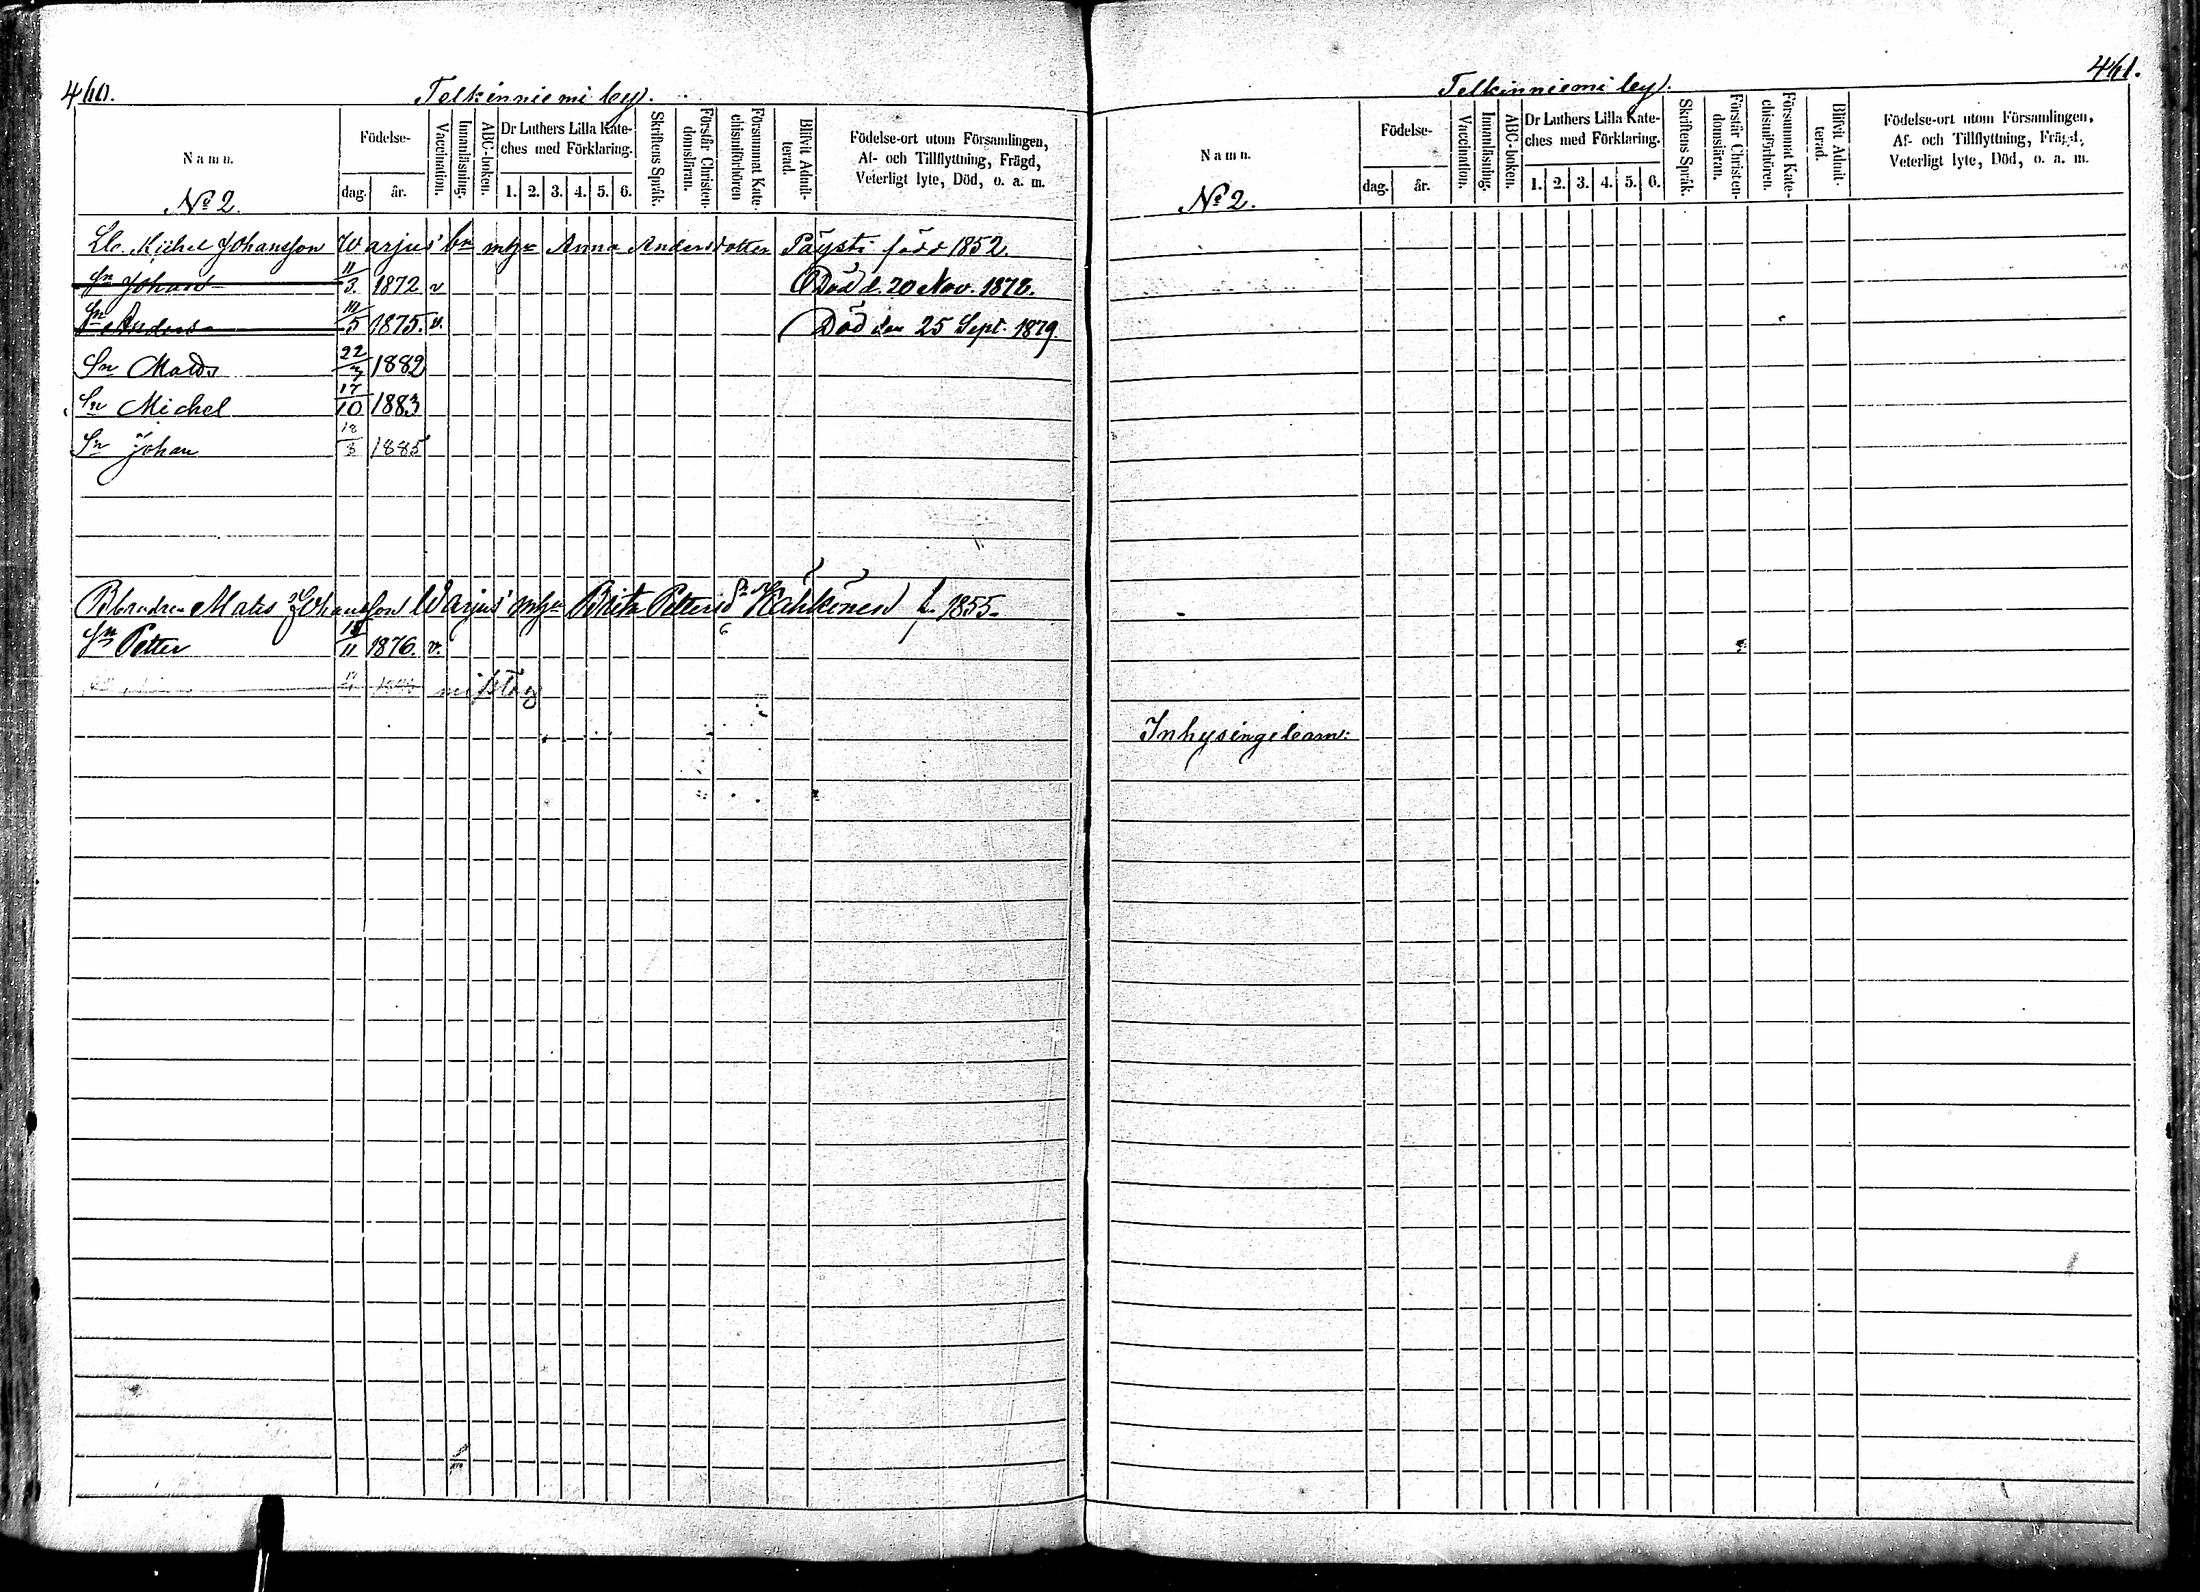 460.
Telkinniemi by.
Namn.
Födelse-
dag. år.
Vaccination.
Innanläsning.
ABC-boken.
Dr Luthers Lilla Kate-
ches med Förklaring.
1. 2. 3. 4. 5. 6.
Skriftens Språk.
Förstår Christen-
domsläran.
Försummat Kate-
chismiförhören
Blifvit Admit-
terad.
Födelse-ort utom Församlingen,
Af- och Tillflyttning, Frägd,
Veterligt lyte, Död, o. a. m.
No 2.
Michel Johansson Warjus' bn m hn Anna Andersdotter Päysti född 1852.
Sn Johan 11/3 1872 v Död d. 20 Nov. 1878.
Sn Anders 10/5 1875. v. Död den 25 Sept. 1879.
Sn Mats 22/7 1882
Sn Michel 17/10 1883
Sn Johan 18/3 1885
Mats Johansson Warjus' m hn Brita Pettersdr Kähkönen f. 1855.
Sn Petter 11 1876. v.
misstag
461.
Telkinniemi by.
Namn.
Födelse-
dag. år.
Vaccination.
Innanläsning.
ABC-boken.
Dr Luthers Lilla Kate-
ches med Förklaring.
1. 2. 3. 4. 5. 6.
Skriftens Språk.
Förstår Christen-
domsläran.
Försummat Kate-
chismiförhören.
Blifvit Admit-
terad.
Födelse-ort utom Församlingen,
Af- och Tillflyttning, Frägd,
Veterligt lyte, Död, o. a. m.
No 2.
Inhysingebarn: